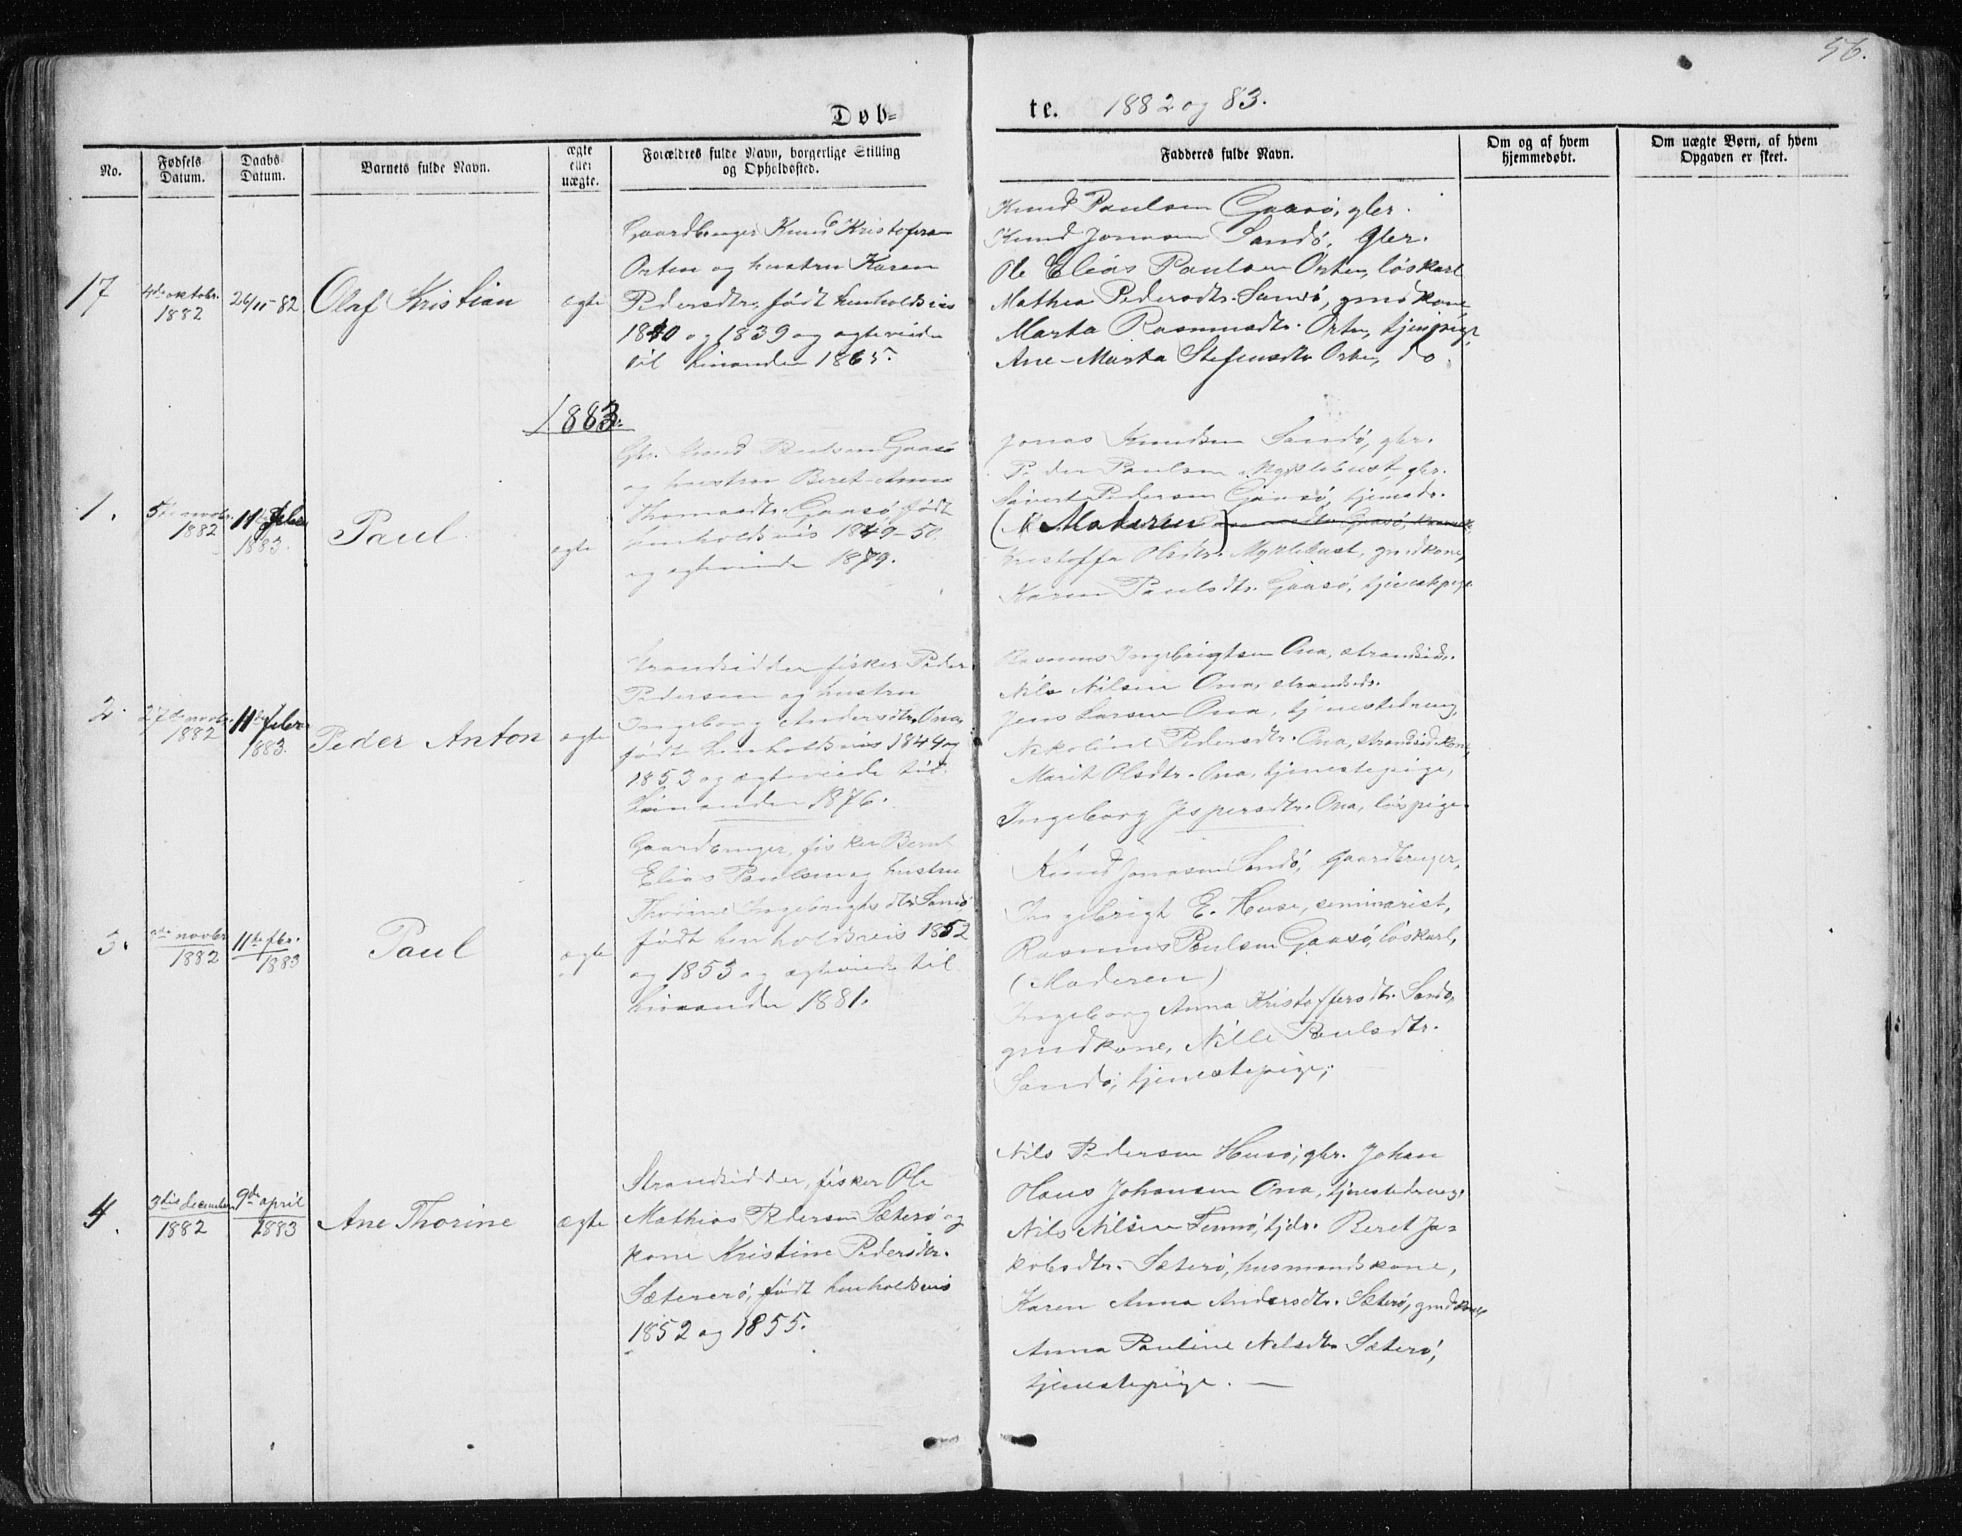 56.
Døb-
te. 1882 og 83.
No.
Fødsels Datum.
Daabs Datum.
Barnets fulde Navn.
ægte eller uægte.
Forældres fulde Navn, borgerlige Stilling og Opholdssted.
Fadderes fulde Navn.
Om og af hvem hjemmedøbt.
Om uægte Børn, af hvem Opgaven er skeet.
17
4de oktobr. 1882
26/11-82
Olaf Kristian
ægte
Gaardbruger Knud Kristofersen
Orten og hustru Karen
Pedersdtr. født henholdsvis
1840 og 1839 og ægteviede
til hinanden 1865.
Knud Paulsen Gaasø, gbr.
Knud Jonasen Sandø, gbr.
Ole Elias Paulsen Orten, løskarl
Mathea Pedersdtr. Sandø, gmdkone
Marta Rasmusdtr. Orten, tjenpige,
Ane-Marta Stefensdtr Orten, do.
1883.
1.
5te novbr. 1882
11te febr. 1883.
Paul
ægte
Gbr. Knud Paulsen Gaasø
og hustru Beret-Anna
Thomasdtr. Gaasø, født
henholdsvis 1849-50
og ægteviede 1879.
Jonas Knudsen Sandø, gbr.
Peder Paulsen Myklebust, gbr.
Sivert Pedersen Gaasø, tjenedr.
(Moderen)
Kristoffa Olsdtr. Myklebust, gmdkone,
Karen Paulsdtr. Gaasø, tjenestepige
2.
27de novbr. 1882
11te febr 1883.
Peder Anton
ægte
Strandsidder, fisker Peder
Pedersen og hustru
Ingeborg Andersdtr. Ona,
født henholdsvis 1844 og
1853 og ægteviede til
hinanden 1876.
Rasmus Ingebrigtsen Ona, strandsidr.
Nils Nilsen Ona, strandsidr.
Jens Larsen Ona, tjenestedreng,
Nikoline Pedersdtr. Ona, strandsidkone,
Marit Olsdtr. Ona, tjenestepige,
Ingeborg Jespersdtr. Ona, løspige.
3.
novbr 1882
11te fbr. 1883
Paul
ægte
Gaardbruger, fisker Bernt
Elias Paulsen og hustru
Thorine Ingebrigtsdtr Sandø
født henholdsvis 1852
og 1853 og ægteviede til
hinanden 1881.
Knud Jonasen Sandø, Gaardbruger,
Ingebrigt E. Huse, seminarist,
Rasmus Paulsen Gaasø, løskarl,
(Moderen)
Ingeborg Anna Kristoffersdtr. Sandø,
gmdkone, Nille Paulsdtr.
Sandø, tjenestepige;
4.
3die december 1882
9de april 1883
Ane Thorine
ægte
Strandsidder, fisker Ole
Mathias Pedersen Sæterø og
kone Kristine Pedersdtr.
Sæterø, født henholdsvis
1852 og 1855.
Nils Pedersen Husø, gbr. Johan
Olaus Johansen Ona, tjenestedreng,
Nils Nilsen Finnø, tjdr. Beret Ja-
kobsdtr. Sæterø, husmandskone,
Karen Anna Andersdtr. Sæterø, gmdkone,
Anna Pauline Nilsdtr Sæterø,
tjenestepige. —